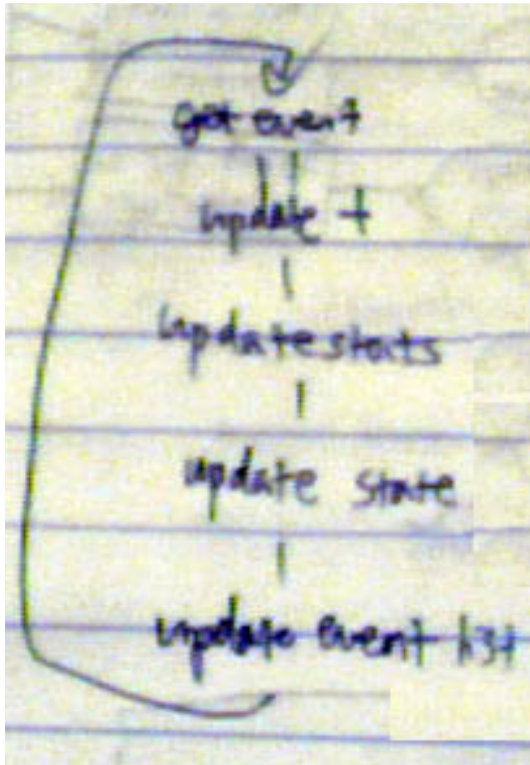 get event
update t
update stats
update state
update event list